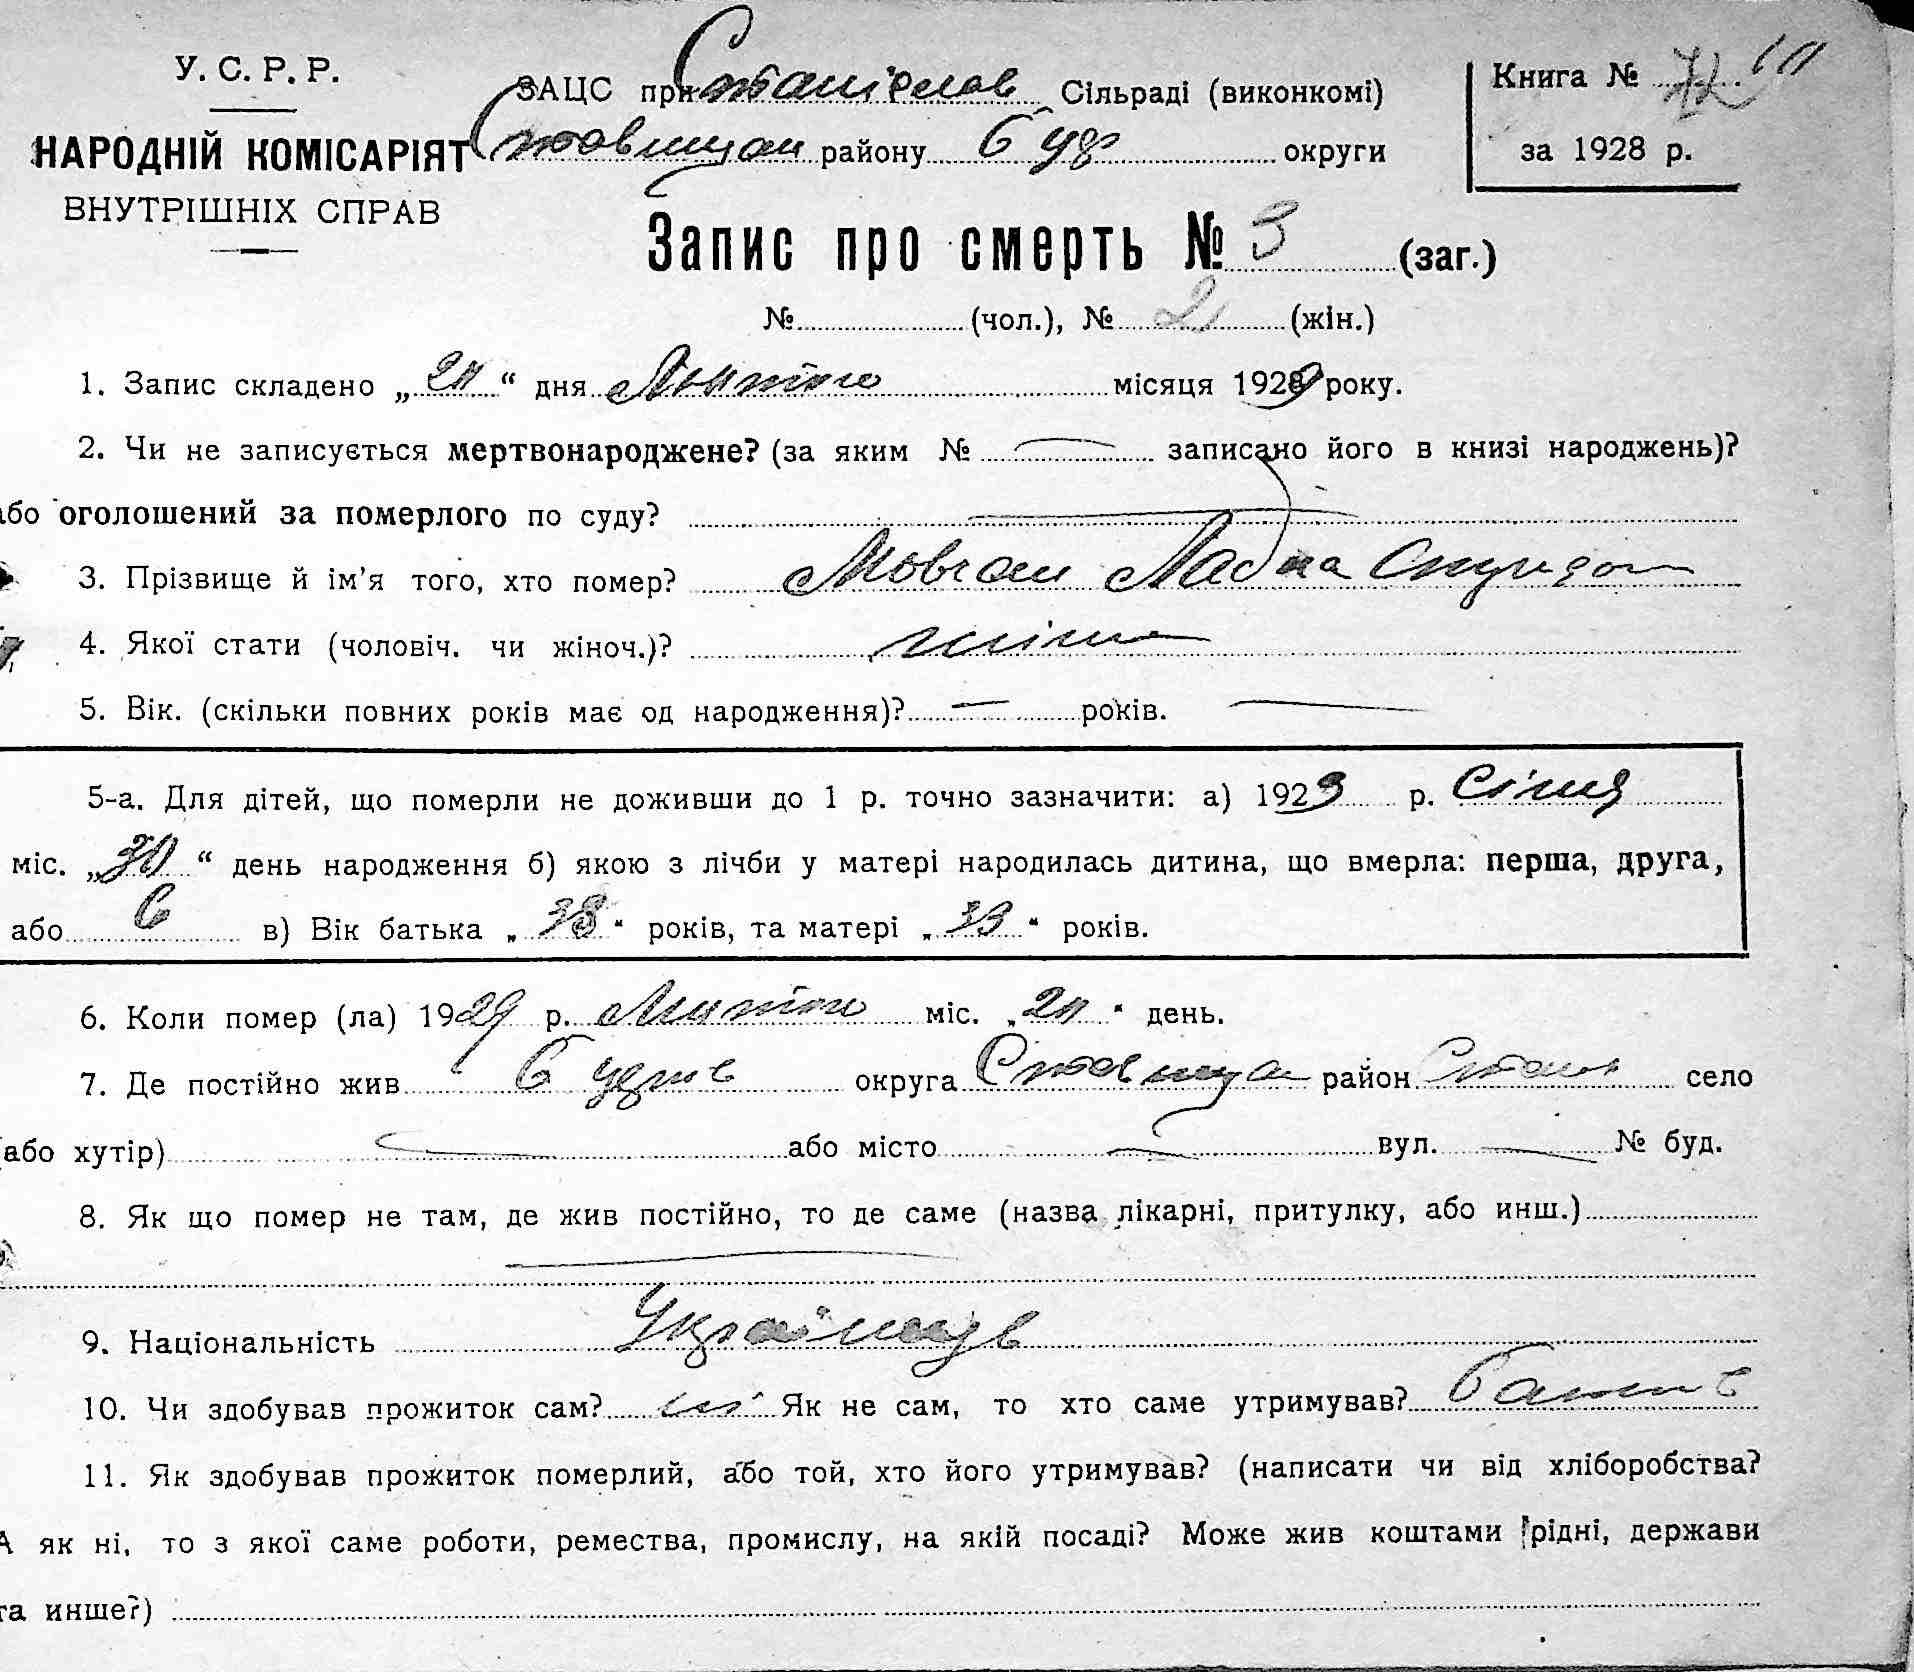 У. С. Р. Р.
НАРОДНІЙ КОМІСАРІЯТ
ВНУТРІШНІХ СПРАВ
ЗАЦС при Станіслав Сільраді (виконкомі)
Ставищан району округи
Книга №
за 1928 р.
Запис про смерть № 3 (заг.)
№ (чол.), № 2 (жін.)
1. Запис складено „ “ дня Лютого місяця 1929 року.
2. Чи не записується мертвонароджене? (за яким № — записано його в книзі народжень)?
або оголошений за померлого по суду? —
3. Прізвище й ім’я того, хто помер? Мовчан
4. Якої стати (чоловіч. чи жіноч.)? жіноч
5. Вік. (скільки повних років має од народження)? — років. —
5-а. Для дітей, що померли не доживши до 1 р. точно зазначити: а) 1929 р. Січня
міс. „30“ день народження б) якою з лічби у матері народилась дитина, що вмерла: перша, друга,
або 6 в) Вік батька „38“ років, та матері „33“ років.
6. Коли помер (ла) 1929 р. Лютого міс. „ “ день.
7. Де постійно жив округа Ставищан район Стані село
(або хутір) — або місто — вул. — № буд.
8. Як що помер не там, де жив постійно, то де саме (назва лікарні, притулку, або инш.)
—
9. Національність
10. Чи здобував прожиток сам? ні Як не сам, то хто саме утримував? Батьк
11. Як здобував прожиток померлий, або той, хто його утримував? (написати чи від хліборобства?
А як ні, то з якої саме роботи, ремества, промислу, на якій посаді? Може жив коштами рідні, держави
та инше?)